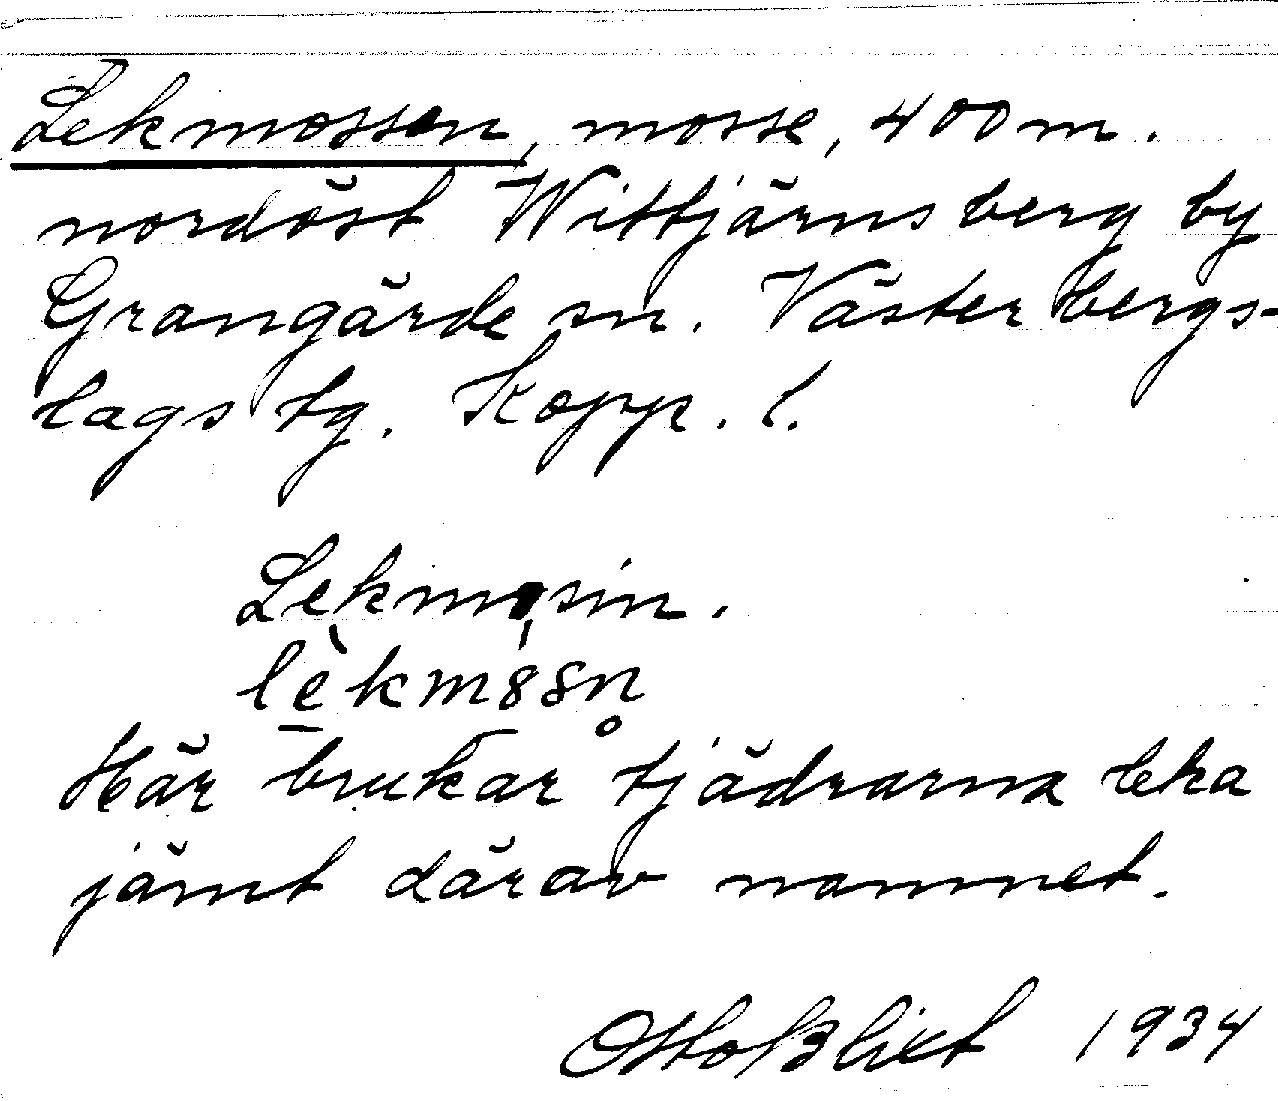 Lekmossen, mosse, 400 m.
nordöst Wittjärnsberg by
Grangärde sn. Västerbergs-
lags tg. Kopp. l.
Lekmosin.
lèkm8sn̥
Här brukar tjädrarna leka
jämt därav namnet.
Otto Blixt 1934